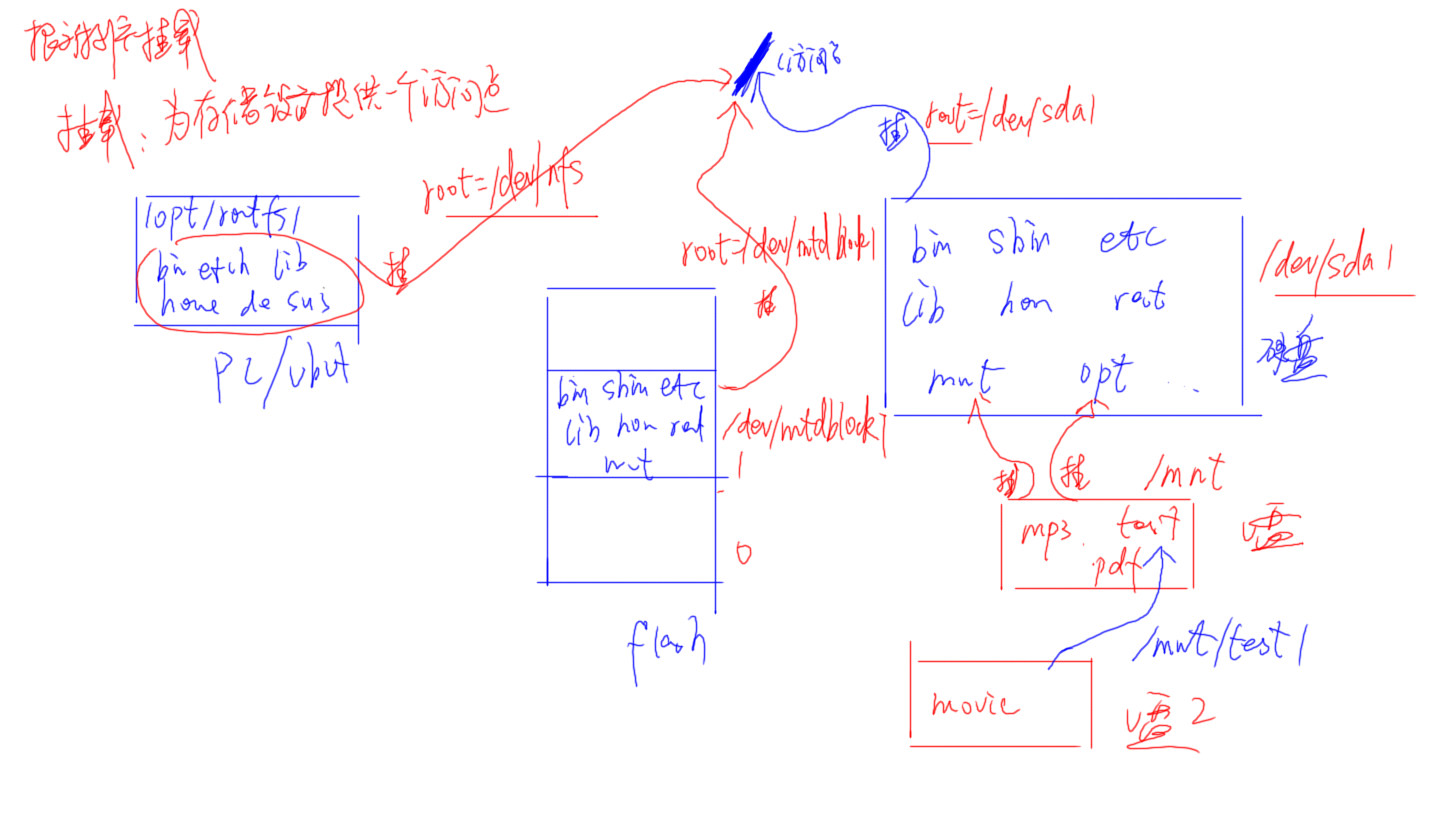 根文件系统挂载
挂载：为存储设备提供一个访问点
(访问点
挂
root=/dev/sda1
root=/dev/nfs
/opt/rootfs/
bin etch lib
home de sus
挂
PC/ubut
root=/dev/mtdblock1
挂
bin sbin etc
lib hom root
mnt
/dev/mtdblock1
1
0
flash
bin sbin etc
lib hom root
mnt opt ...
/dev/sda1
硬盘
挂 挂 /mnt
mp3. test
pdf
U盘
/mnt/test/
movie
U盘2